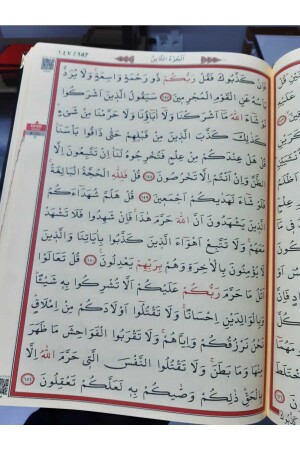 الجزء الثامن
فَاِنْ كَذَّبُوكَ فَقُلْ رَبُّكُمْ ذُو رَحْمَةٍ وَاسِعَةٍ وَلَا يُرَدُّ
بَأْسُهُ عَنِ الْقَوْمِ الْمُجْرِمِينَ ﴿١٤٧﴾ سَيَقُولُ الَّذِينَ اَشْرَكُوا
لَوْ شَاءَ اللّٰهُ مَا اَشْرَكْنَا وَلَا اٰبَاؤُنَا وَلَا حَرَّمْنَا مِنْ شَيْءٍ
كَذٰلِكَ كَذَّبَ الَّذِينَ مِنْ قَبْلِهِمْ حَتّٰى ذَاقُوا بَأْسَنَا
قُلْ هَلْ عِنْدَكُمْ مِنْ عِلْمٍ فَتُخْرِجُوهُ لَنَا اِنْ تَتَّبِعُونَ اِلَّا
الظَّنَّ وَاِنْ اَنْتُمْ اِلَّا تَخْرُصُونَ ﴿١٤٨﴾ قُلْ فَلِلّٰهِ الْحُجَّةُ الْبَالِغَةُ
فَلَوْ شَاءَ لَهَدٰيكُمْ اَجْمَعِينَ ﴿١٤٩﴾ قُلْ هَلُمَّ شُهَدَاءَكُمُ
الَّذِينَ يَشْهَدُونَ اَنَّ اللّٰهَ حَرَّمَ هٰذَا فَاِنْ شَهِدُوا فَلَا تَشْهَدْ
مَعَهُمْ وَلَا تَتَّبِعْ اَهْوَاءَ الَّذِينَ كَذَّبُوا بِاٰيَاتِنَا وَالَّذِينَ
لَا يُؤْمِنُونَ بِالْاٰخِرَةِ وَهُمْ بِرَبِّهِمْ يَعْدِلُونَ ﴿١٥٠﴾ قُلْ تَعَالَوْا
اَتْلُ مَا حَرَّمَ رَبُّكُمْ عَلَيْكُمْ اَلَّا تُشْرِكُوا بِهِ شَيْئًا
وَبِالْوَالِدَيْنِ اِحْسَانًا وَلَا تَقْتُلُوا اَوْلَادَكُمْ مِنْ اِمْلَاقٍ
نَحْنُ نَرْزُقُكُمْ وَاِيَّاهُمْ وَلَا تَقْرَبُوا الْفَوَاحِشَ مَا ظَهَرَ
مِنْهَا وَمَا بَطَنَ وَلَا تَقْتُلُوا النَّفْسَ الَّتِي حَرَّمَ اللّٰهُ اِلَّا
بِالْحَقِّ ذٰلِكُمْ وَصّٰيكُمْ بِهِ لَعَلَّكُمْ تَعْقِلُونَ ﴿١٥١﴾